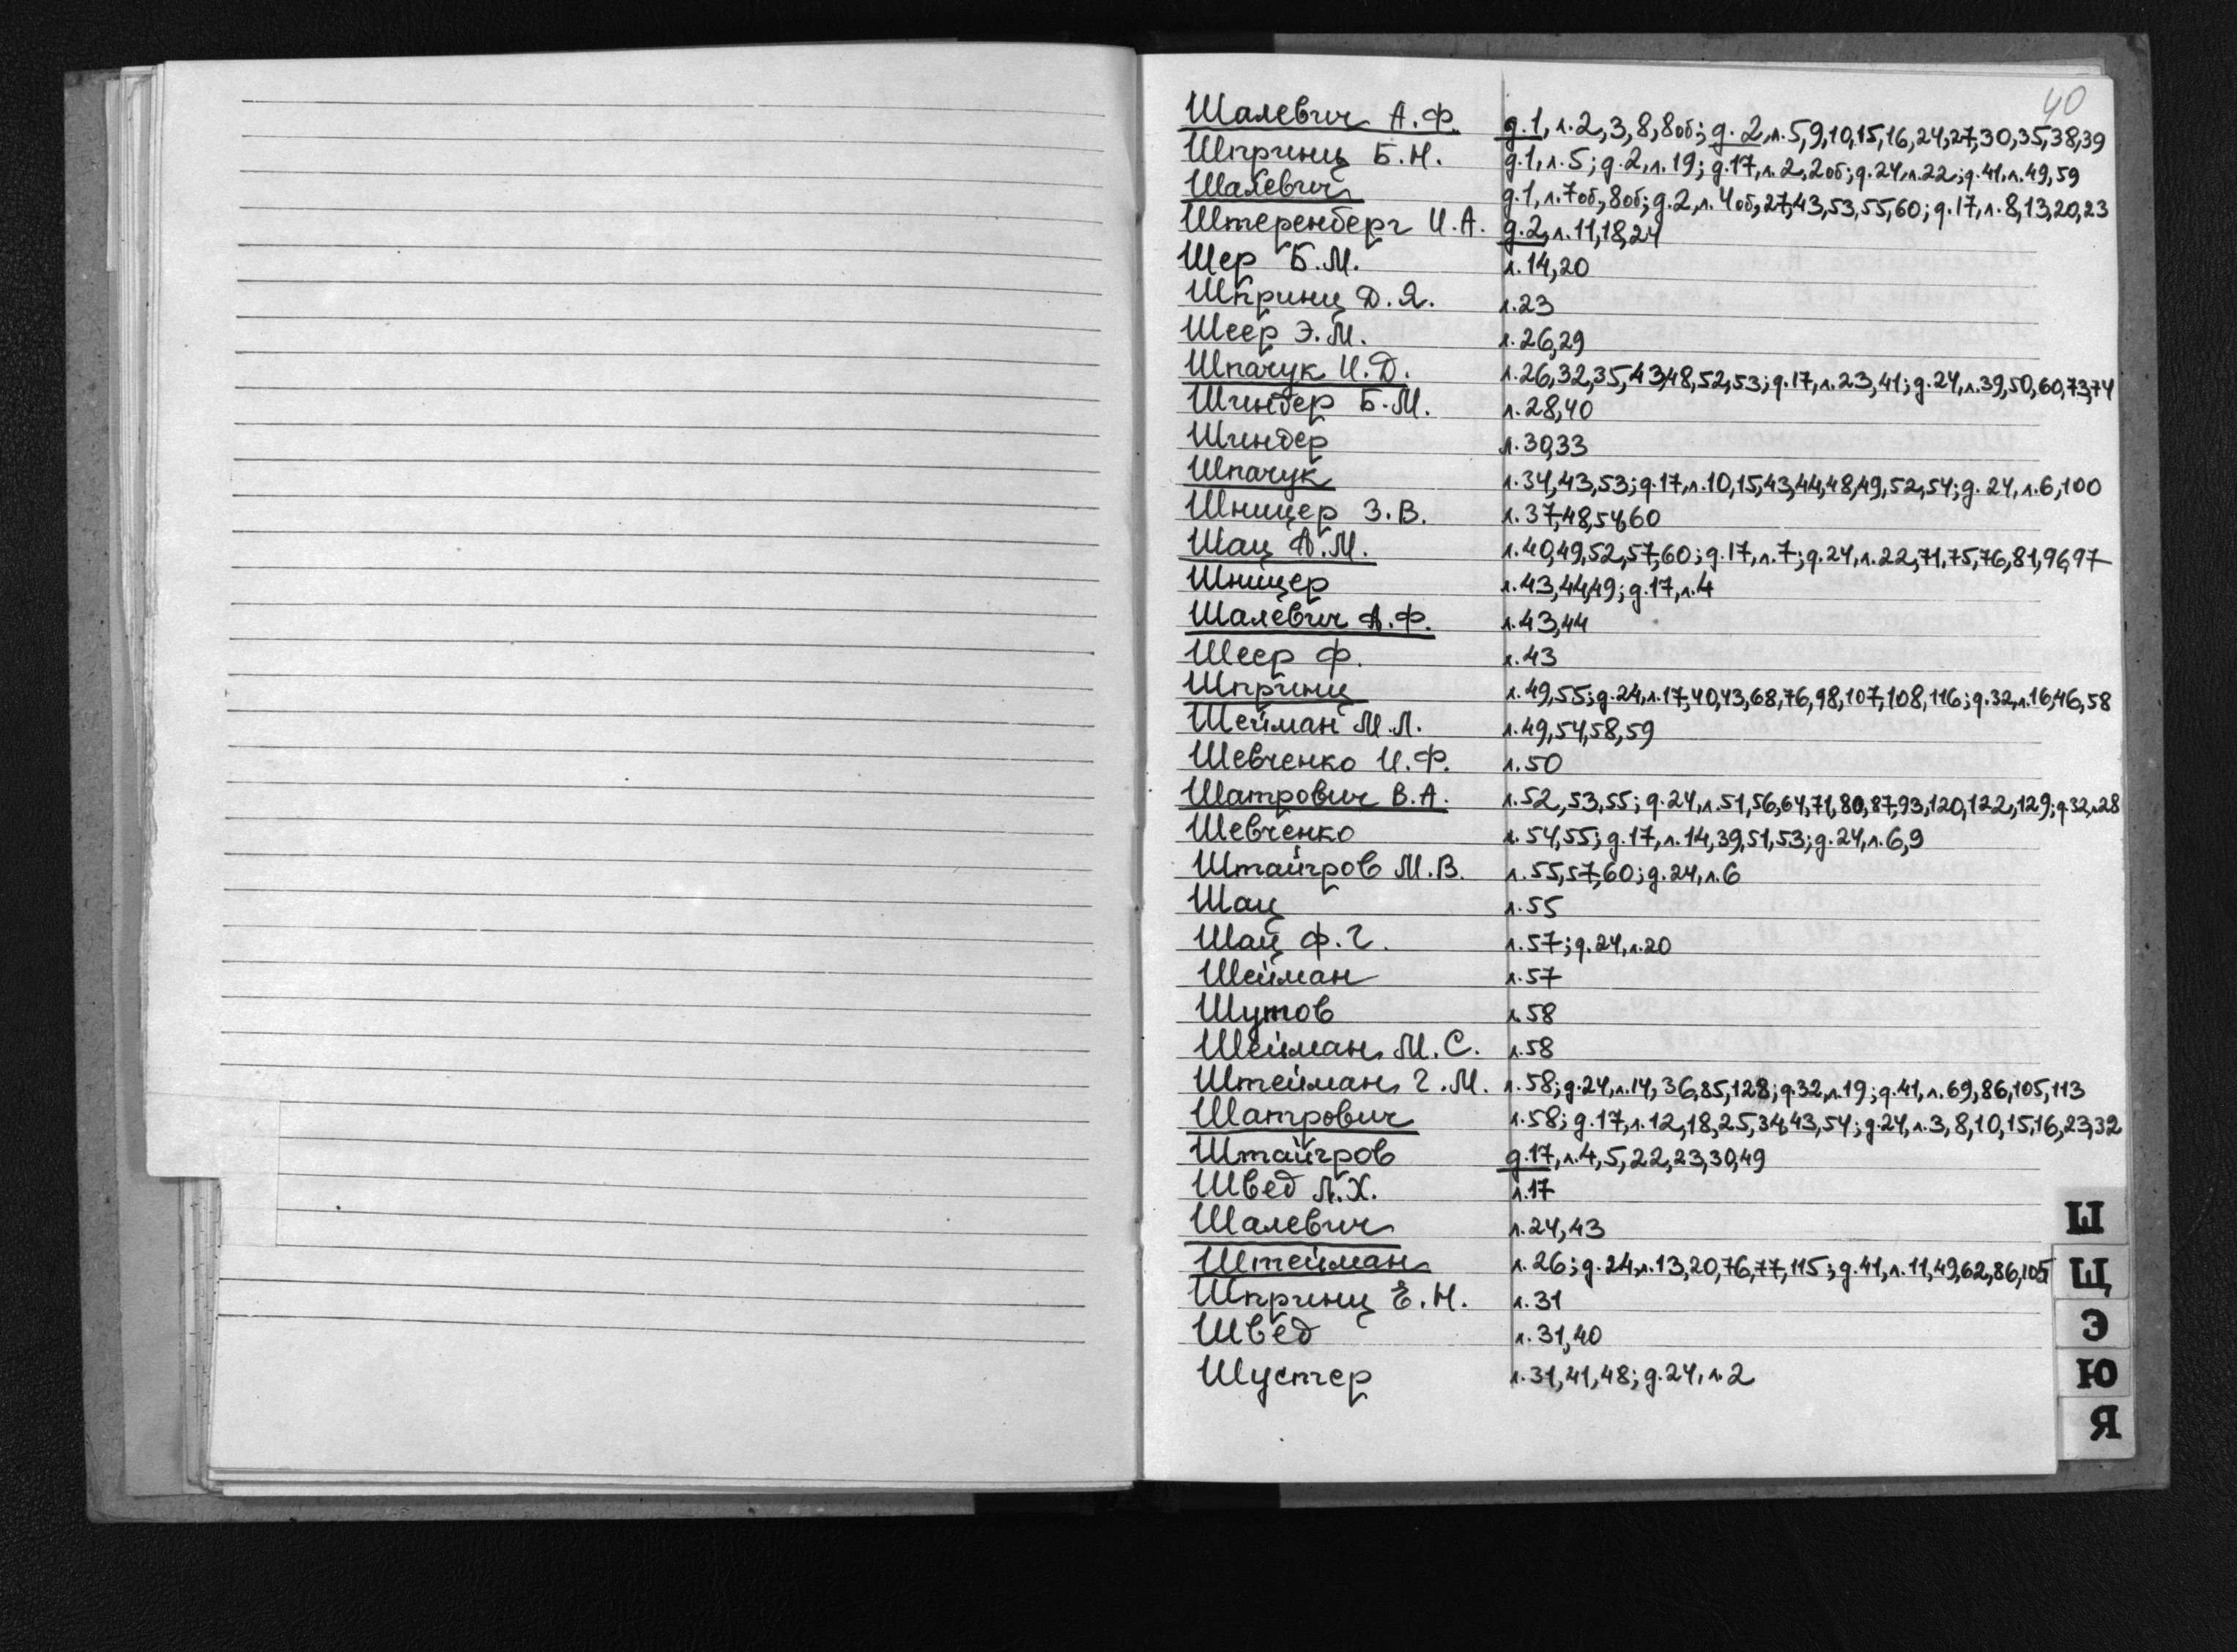 40
Шалевич А.Ф. д.1, л.2,3,8,8об; д.2, л.5,9,10,15,16,24,27,30,35,38,39
Шпринц Б.Н. д.1, л.5; д.2, л.19; д.17, л.2,2об; д.24, л.22; д.41, л.49,59
Шалевич д.1, л.7об,8об; д.2, л.4об,27,43,53,55,60; д.17, л.8,13,20,23
Штеренберг И.А. д.2, л.11,18,24
Шер Б.М. л.14,20
Шпринц Д.Я. л.23
Шеер Э.М. л.26,29
Шпачук И.Д. л.26,32,35,43,48,52,53; д.17, л.23,41; д.24, л.39,50,60,73,74
Шиндер Б.М. л.28,40
Шиндер л.30,33
Шпачук л.34,43,53; д.17, л.10,15,43,44,48,49,52,54; д.24, л.6,100
Шницер З.В. л.37,48,54,60
Шац А.М. л.40,49,52,57,60; д.17, л.7; д.24, л.22,71,75,76,81,96,97
Шницер л.43,44,49; д.17, л.4
Шалевич А.Ф. л.43,44
Шеер Ф. л.43
Шпринц л.49,55; д.24, л.17,40,43,68,76,98,107,108,116; д.32, л.16,46,58
Шейман М.Л. л.49,54,58,59
Шевченко И.Ф. л.50
Шатрович В.А. л.52,53,55; д.24, л.51,56,64,71,80,87,93,120,122,129; д.32, л.28
Шевченко л.54,55; д.17, л.14,39,51,53; д.24, л.6,9
Штайгров М.В. л.55,57,60; д.24, л.6
Шац л.55
Шац Ф.Г. л.57; д.24, л.20
Шейман л.57
Шутов л.58
Шейман М.С. л.58
Штейман Г.М. л.58; д.24, л.14,36,85,128; д.32, л.19; д.41, л.69,86,105,113
Шатрович л.58; д.17, л.12,18,25,34,43,54; д.24, л.3,8,10,15,16,23,32
Штайгров д.17, л.4,5,22,23,30,49
Швед Л.Х. л.17
Шалевич л.24,43
Штейман л.26; д.24, л.13,20,76,77,115; д.41, л.11,49,62,86,105
Шпринц Е.Н. л.31
Швед л.31,40
Шустер л.31,41,48; д.24, л.2
Ш
Щ
Э
Ю
Я